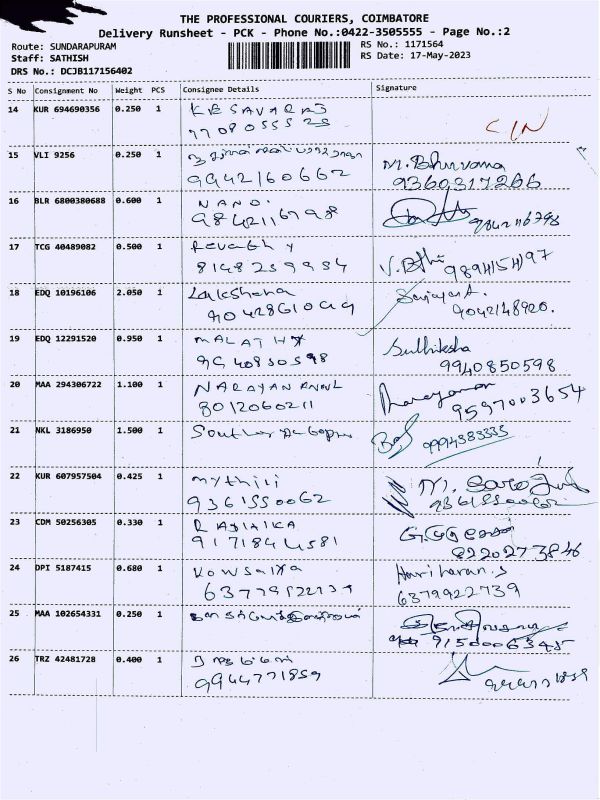 THE PROFESSIONAL COURIERS, COIMBATORE
Delivery Runsheet - PCK - Phone No.:0422-3505555 - Page No.:2
Route: SUNDARAPURAM RS No.: 1171564
Staff: SATHISH RS Date: 17-May-2023
DRS No.: DCJB117156402
S No Consignment No Weight PCS Consignee Details Signature
14 KUR 694690356 0.250 1 KESAVARAJ
CIN
15 VLI 9256 0.250 1 M. Bhuvana
9942160662 9360317266
16 BLR 6800380688 0.600 1 NAND.
9842116798 9842116798
17 TCG 40489082 0.500 1 Revathy
8148259954 9894154197
18 EDQ 10196106 2.050 1 Lakshana
9042148920.
19 EDQ 12291520 0.950 1 MALATHY Sudhiksha
9940850598 9940850598
20 MAA 294306722 1.100 1 NARAYANANNL Narayanan
8012060211 9597003654
21 NKL 3186950 1.500 1 9994383335
22 KUR 607957504 0.425 1 Mythili
9361550062 9361550062
23 CDM 50256305 0.330 1 RADHIKA
9171844581 8220273846
24 DPI 5187415 0.680 1 Kowsalya Hariharan.S
6379922739 6379922739
25 MAA 102654331 0.250 1 9150006345
26 TRZ 42481728 0.400 1
9944771859